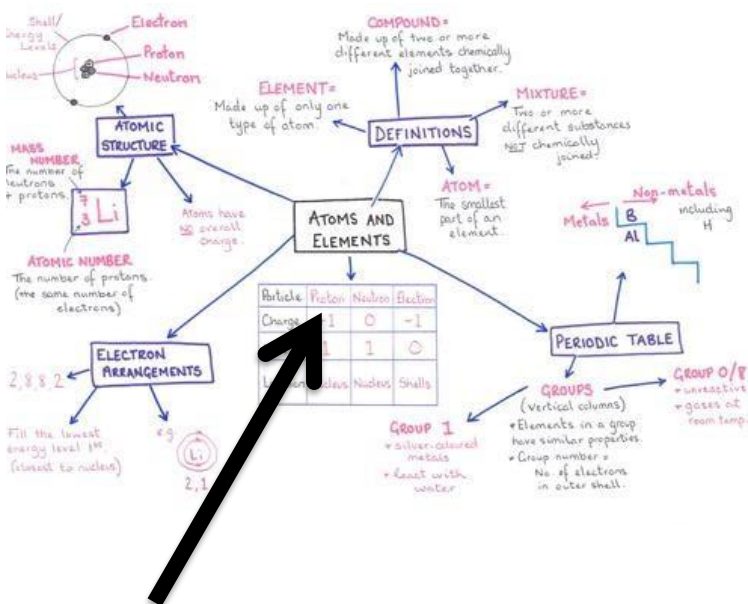 Shell/
Energy
Levels
Nucleus
Electron
Proton
Neutron
ATOMIC
STRUCTURE
MASS
NUMBER
The number of
neutrons
+ protons.
7
3 Li
Atoms have
NO overall
charge.
ATOMIC NUMBER
The number of protons.
(the same number of
electrons)
COMPOUND=
Made up of two or more
different elements chemically
joined together.
ELEMENT=
Made up of only one
type of atom.
DEFINITIONS
MIXTURE=
Two or more
different substances
NOT chemically
joined.
ATOM=
The smallest
part of an
element.
ATOMS AND
ELEMENTS
Non-metals
including
H
Metals
B
Al
Particle Proton Neutron Electron
Charge +1 0 -1
1 1 0
Nucleus Nucleus Shells
PERIODIC TABLE
ELECTRON
ARRANGEMENTS
2,8,8,2
Fill the lowest
energy level 1st.
(closest to nucleus)
e.g
Li
2,1
GROUPS
(vertical columns)
• Elements in a group
have similar properties.
• Group number =
No. of electrons
in outer shell.
GROUP 1
• silver-coloured
metals
• React with
water
GROUP 0/8
• unreactive
• gases at
room temp.